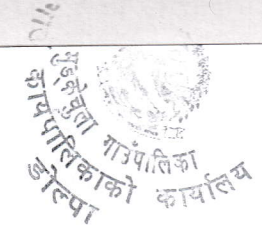 मुड्केचुला गाउँपालिका
कार्यपालिकाको कार्यालय
डोल्पा